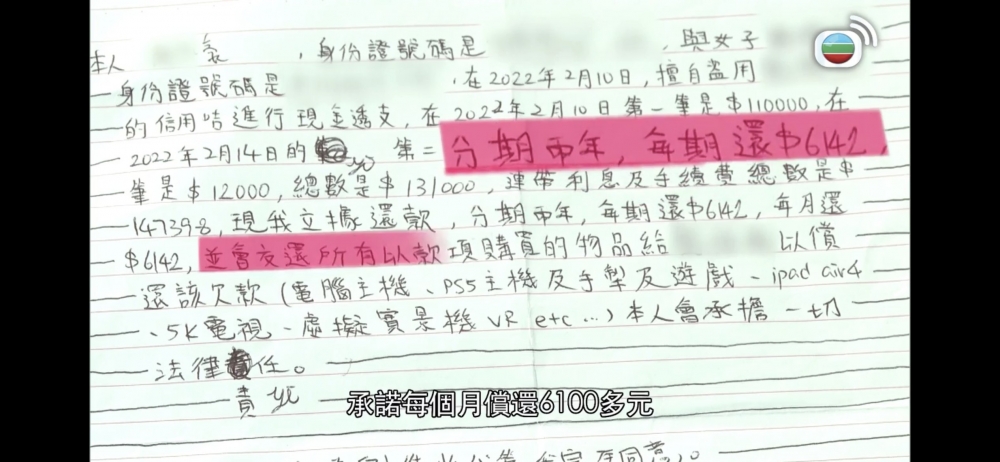 本人 ，身份證號碼是 ，與女子
身份證號碼是 ，在2022年2月10日，擅自盜用
的信用咭進行現金透支，在2022年2月10日第一筆是$110000，在
2022年2月14日的 yc 第二
分期兩年，每期還$6142，
筆是$12000，總數是$131000，連帶利息及手續費總數是$
147398，現我立據還款，分期兩年，每期還$6142，每月還
$6142，並會交還所有以款項購買的物品給 以償
還該欠款(電腦主機、PS5主機及手掣及遊戲、ipad air4
、5K電視、虛擬實景機VR etc...)本人會承擔一切
法律 任。
責 yc
承諾每個月償還6100多元